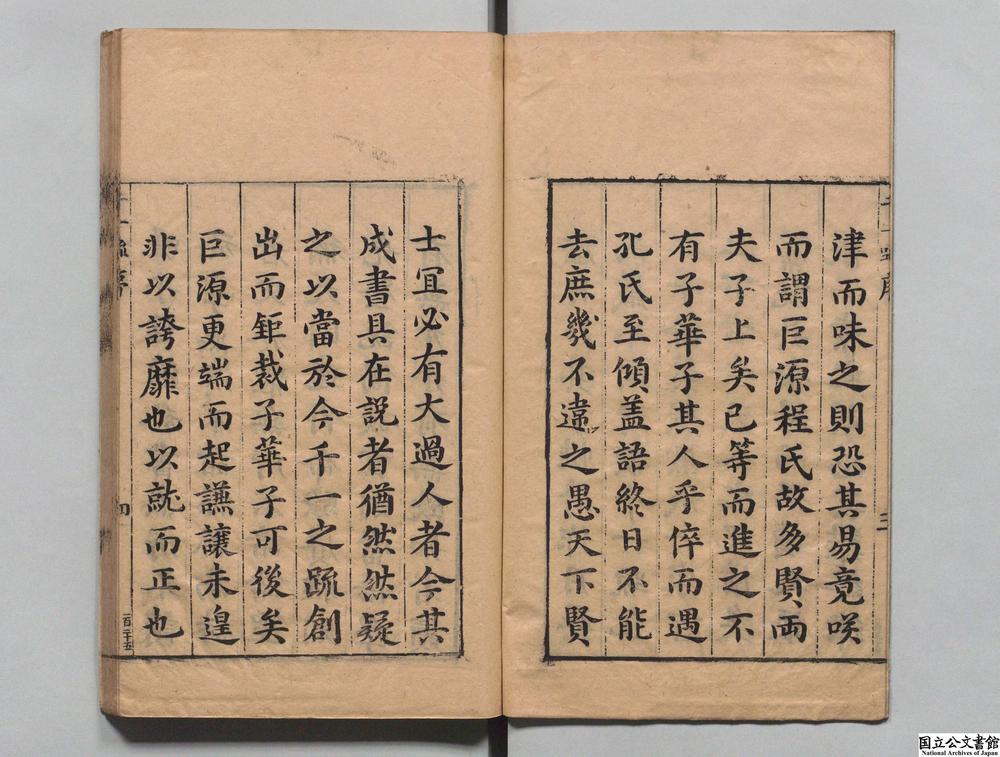 津而味之則恐其易竟咲
而謂巨源程氏故多賢兩
夫子上矣已等而進之不
有子華子其人乎倅而遇
孔氏至傾盖語終日不能
去庶幾不違之愚天下賢
三
士冝必有大過人者今其
成書具在説者猶然然疑
之以當於今千一之䟽創
出而鉅裁子華子可後矣
巨源更端而起謙讓未遑
非以誇靡也以就而正也
四
一百二十五
国立公文書館
National Archives of Japan